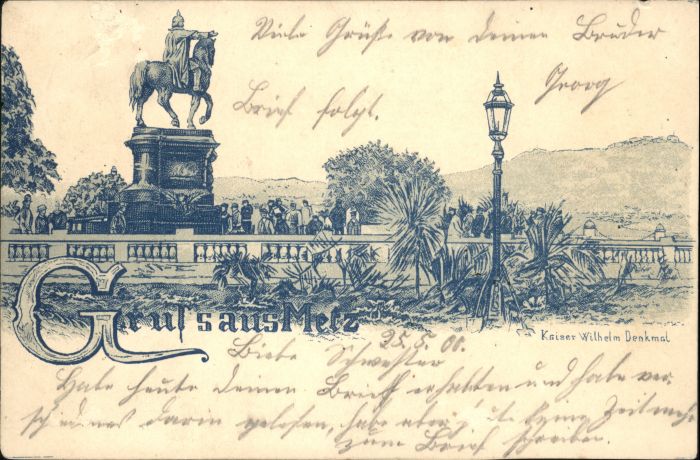 Viele Grüße von deinen Bruder
Georg
Brief folgt.
Gruss aus Metz
Kaiser Wilhelm Denkmal
25.5.00.
Liebe Schwester
Habe heute deinen Brief erhalten und habe ver
schiednes darin gelesen, habe aber heute keine Zeit mehr
zum Brief schreiben.